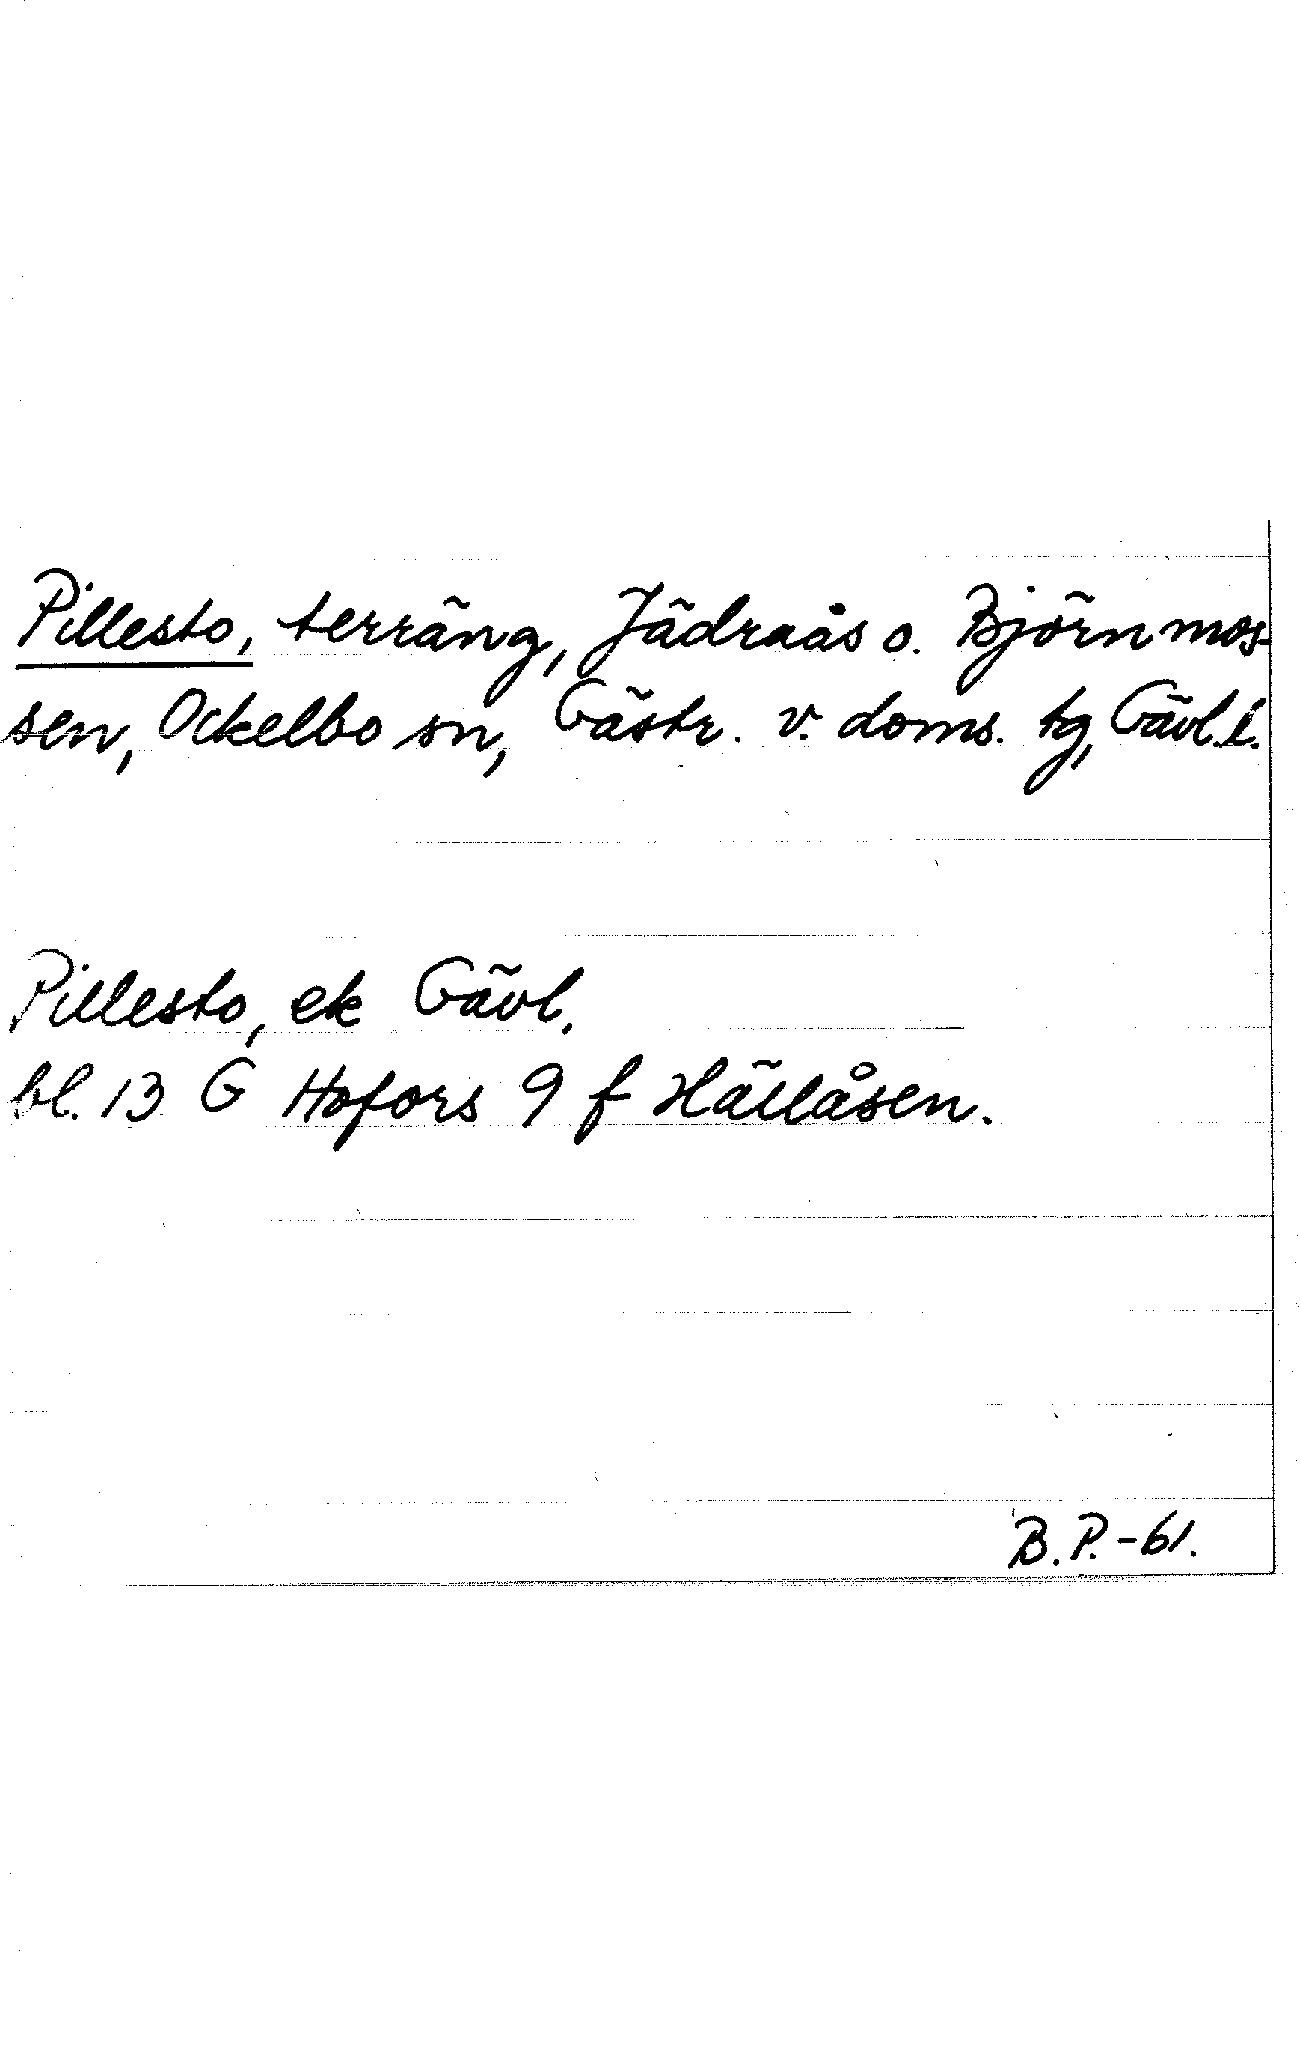 Pillesto, terräng, Jädraås o. Björnmos-
sen, Ockelbo sn, Gästr. v. doms. tg, Gävl. l.
Pillesto, ek Gävl.
bl. 13 G Hofors 9 f Hällåsen.
B.P.-61.